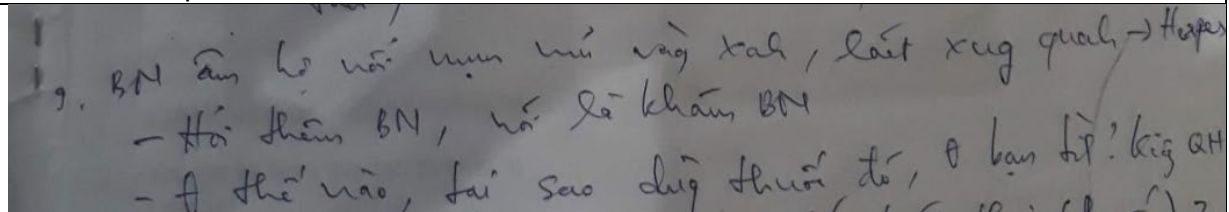 9. BN âm hộ nổi mụn mủ vàg xah, loét xug quah → Herpes
- Hỏi thêm BN, nói là khám BN
- θ thế nào, tại sao dùg thuốc đó, θ bạn tì? kig QH